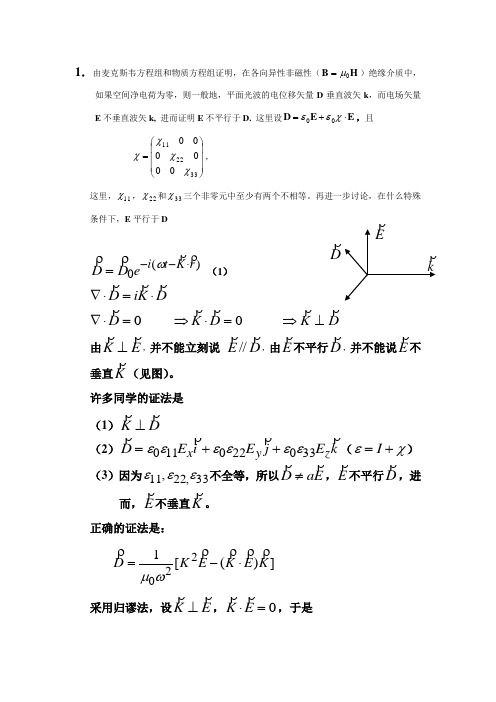 1. 由麦克斯韦方程组和物质方程组证明，在各向异性非磁性（B = μ₀H）绝缘介质中，
如果空间净电荷为零，则一般地，平面光波的电位移矢量 D 垂直波矢 k，而电场矢量
E 不垂直波矢 k, 进而证明 E 不平行于 D. 这里设 D = ε₀E + ε₀χ · E，且
χ = ( χ₁₁ 0 0
0 χ₂₂ 0
0 0 χ₃₃ ),
这里，χ₁₁，χ₂₂ 和 χ₃₃ 三个非零元中至少有两个不相等。再进一步讨论，在什么特殊
条件下，E 平行于 D
E
D
k
D = D₀e^{-i(ωt-K·r)} (1)
∇·D = iK·D
∇·D = 0 ⇒ K·D = 0 ⇒ K ⊥ D
由 K ⊥ E，并不能立刻说 E // D，由 E 不平行 D，并不能说 E 不
垂直 K（见图）。
许多同学的证法是
（1）K ⊥ D
（2）D = ε₀ε₁₁Eₓi + ε₀ε₂₂E_y j + ε₀ε₃₃E_z k（ε = I + χ）
（3）因为 ε₁₁, ε₂₂, ε₃₃ 不全等，所以 D ≠ aE，E 不平行 D，进
而，E 不垂直 K。
正确的证法是：
D = 1/(μ₀ω²) [K²E − (K·E)K]
采用归谬法，设 K ⊥ E，K·E = 0，于是